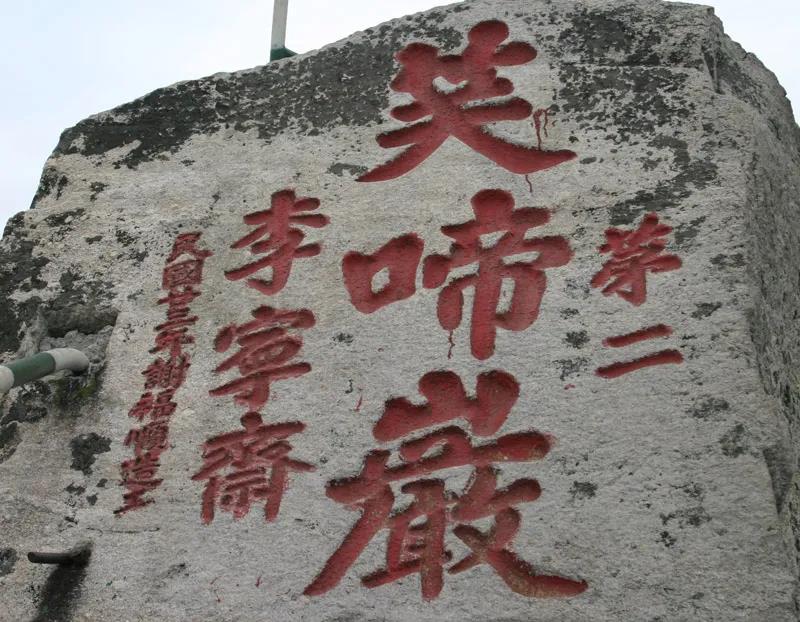 第二
笑啼巖
李寧齋
民國廿三年謝福順造工